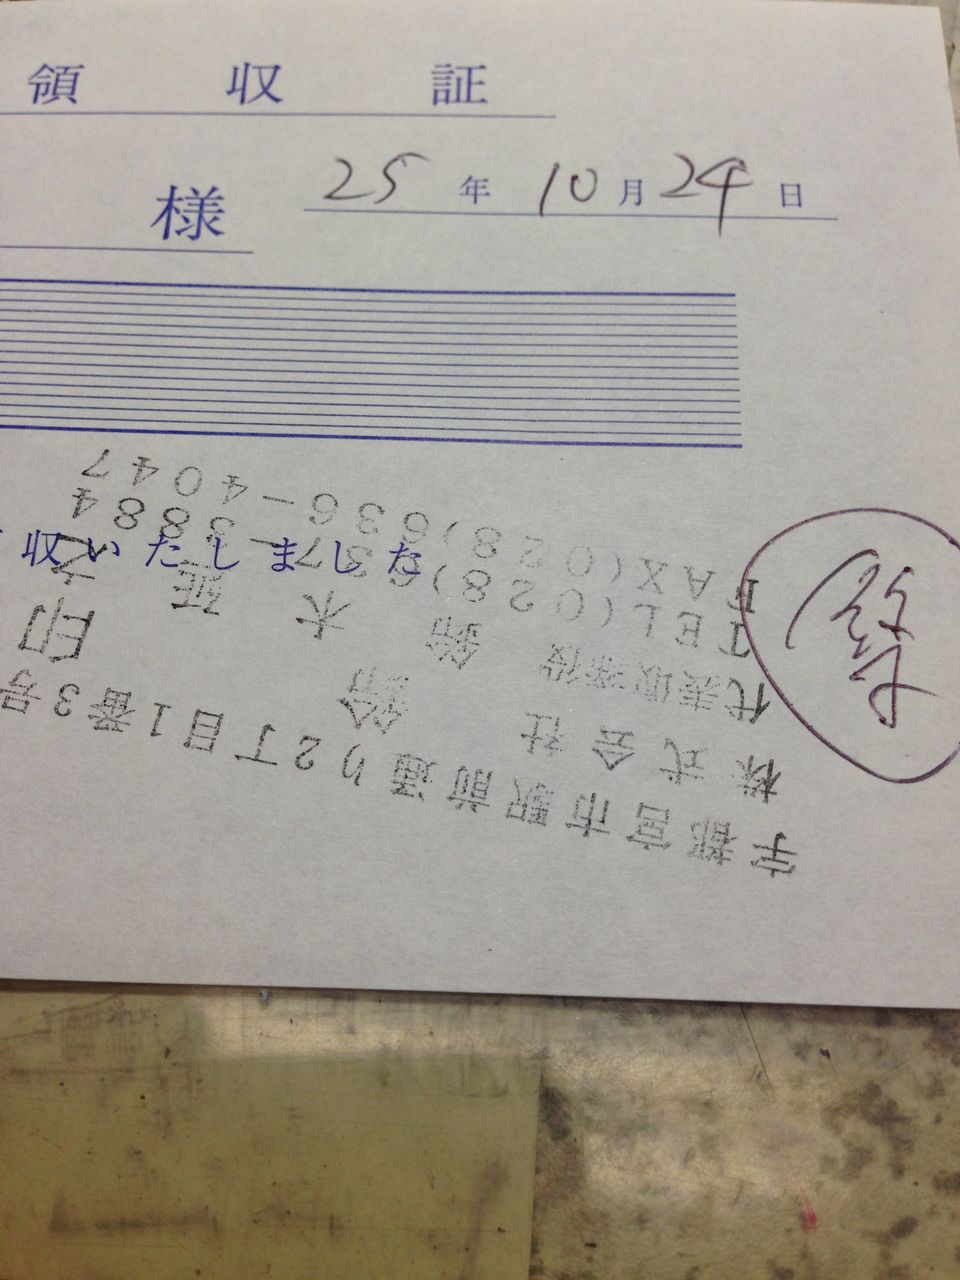 領収証
様 25年10月24日
収いたしました
宇都宮市駅前通り2丁目1番3号
株式会社 鈴印
代表取締役 鈴木延
TEL(028)637-3884
FAX(028)636-4047